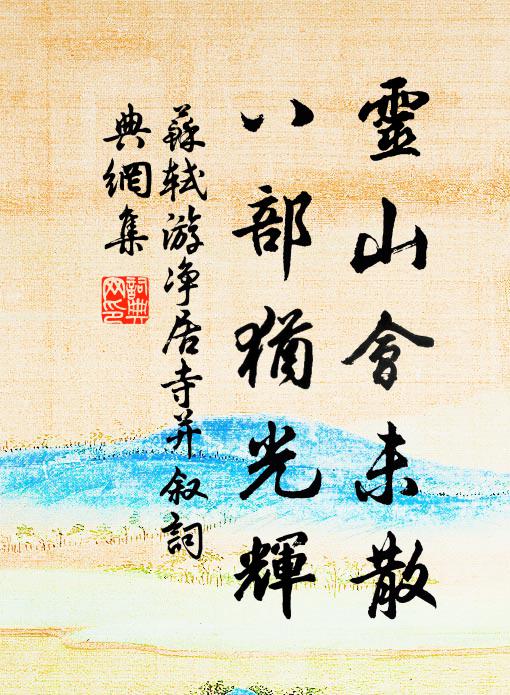 靈山會未散
八部猶光輝
蘇軾游净居寺并叙詞
典網集
詞典网印